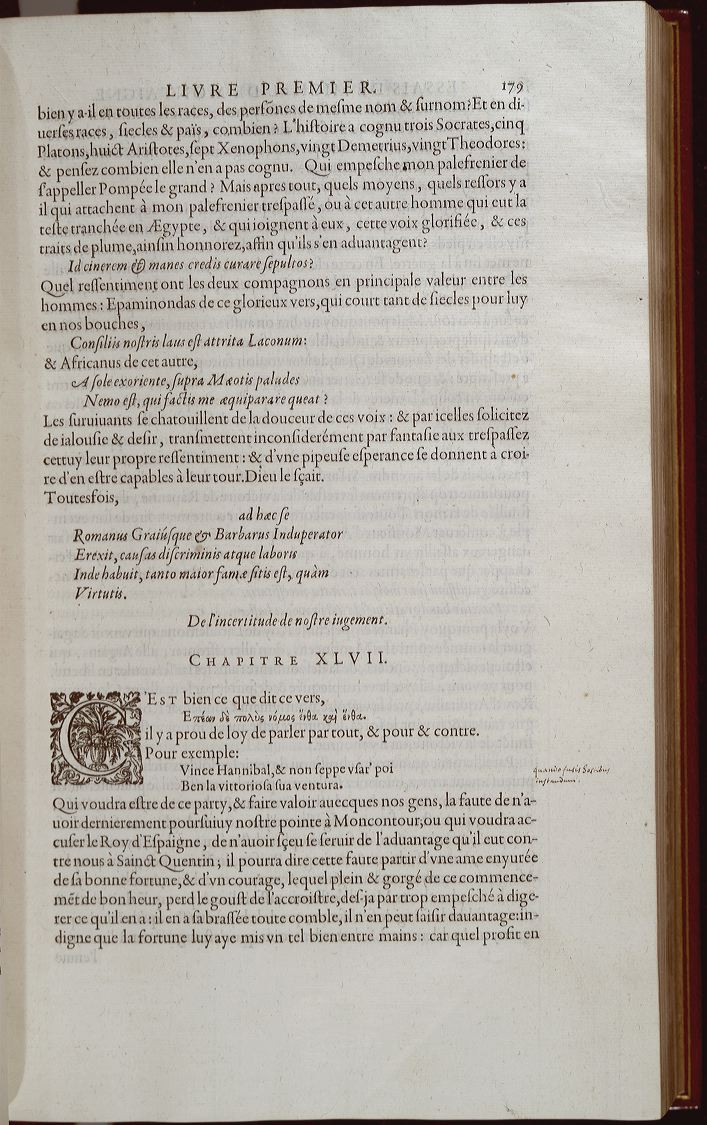 LIVRE PREMIER. 179
bien y a-il en toutes les races, des persõnes de mesme nom & surnom? Et en di-
uerses races, siecles & païs, combien? L'histoire a cognu trois Socrates, cinq
Platons, huict Aristotes, sept Xenophons, vingt Demetrius, vingt Theodores:
& pensez combien elle n'en a pas cognu. Qui empesche mon palefrenier de
s'appeller Pompée le grand? Mais apres tout, quels moyens, quels ressors y a
il qui attachent à mon palefrenier trespassé, ou à cet autre homme qui eut la
teste tranchée en Ægypte, & qui ioignent à eux, cette voix glorifiée, & ces
traits de plume, ainsin honnorez, affin qu'ils s'en aduantagent?
Id cinerem & manes credis curare sepultos?
Quel ressentiment ont les deux compagnons en principale valeur entre les
hommes: Epaminondas de ce glorieux vers, qui court tant de siecles pour luy
en nos bouches,
Consiliis nostris laus est attrita Laconum:
& Africanus de cet autre,
A sole exoriente, supra Mæotis paludes
Nemo est, qui factis me æquiparare queat?
Les suruiuants se chatouillent de la douceur de ces voix: & par icelles solicitez
de ialousie & desir, transmettent inconsiderément par fantasie aux trespassez
cettuy leur propre ressentiment: & d'vne pipeuse esperance se donnent à croi-
re d'en estre capables à leur tour. Dieu le sçait.
Toutesfois,
ad hæc se
Romanus Graiúsque & Barbarus Induperator
Erexit, causas discriminis atque laboris
Inde habuit, tanto maior famæ sitis est, quàm
Virtutis.
De l'incertitude de nostre iugement.
CHAPITRE XLVII.
C'EST bien ce que dit ce vers,
Επέων δὲ πολὺς νόμος ἔνθα καὶ ἔνθα.
il y a prou de loy de parler par tout, & pour & contre.
Pour exemple:
Vince Hannibal, & non seppe vsar' poi
Ben la vittoriosa sua ventura.
quando fusis
instandum.
Qui voudra estre de ce party, & faire valoir auecques nos gens, la faute de n'a-
uoir dernierement poursuiuy nostre pointe à Moncontour; ou qui voudra ac-
cuser le Roy d'Espaigne, de n'auoir sçeu se seruir de l'aduantage qu'il eut con-
tre nous à Sainct Quentin; il pourra dire cette faute partir d'vne ame enyurée
de sa bonne fortune, & d'vn courage, lequel plein & gorgé de ce commence-
mẽt de bon heur, perd le goust de l'accroistre, des-ja par trop empesché à dige-
rer ce qu'il en a: il en a sa brassée toute comble, il n'en peut saisir dauantage: in-
digne que la fortune luy aye mis vn tel bien entre mains: car quel profit en